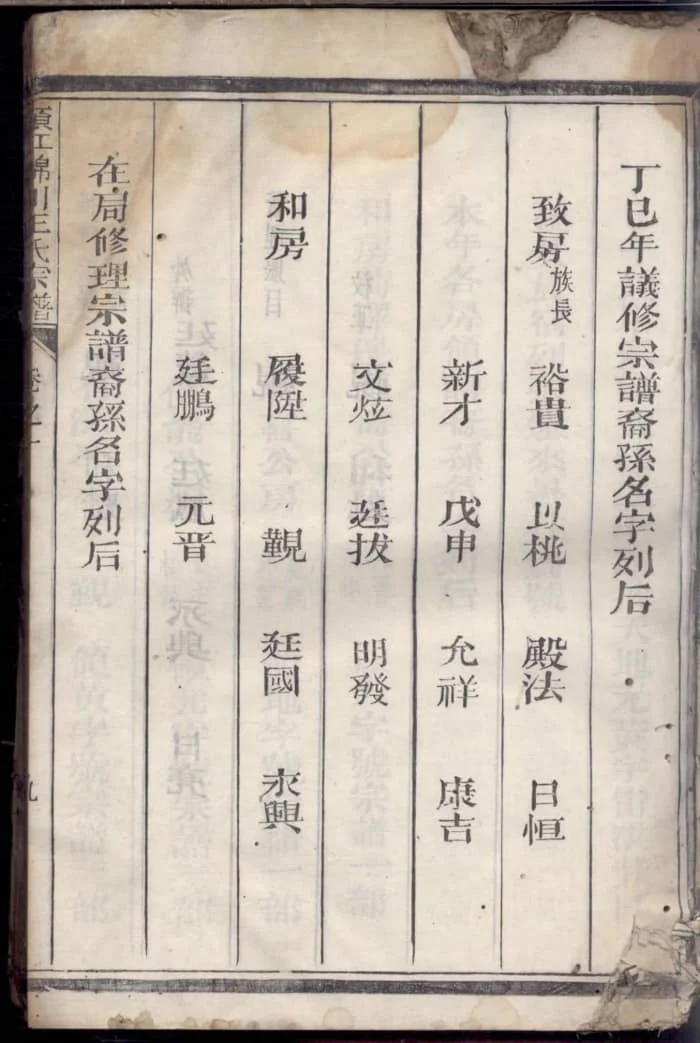 丁巳年議修宗譜裔孫名字列后
致房 族長 裕貴 以桃 殿法 日恒
新才 戊申 允祥 康吉
文炫 廷拔 明發
和房 履陞 觀 廷國 永興
廷鵬 元晋
在局修理宗譜裔孫名字列后
江錦川王氏宗譜
卷之
九